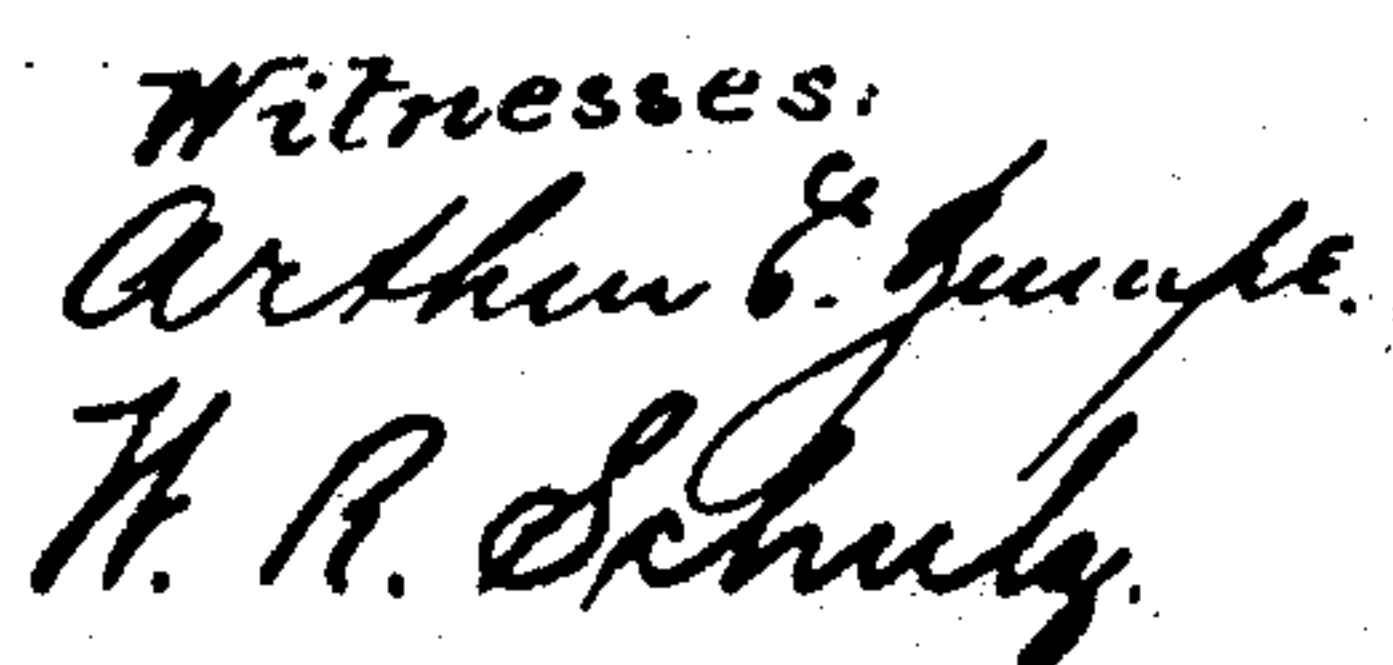 Witnesses:
Arthur E. Zumpe.
W. R. Schulz.